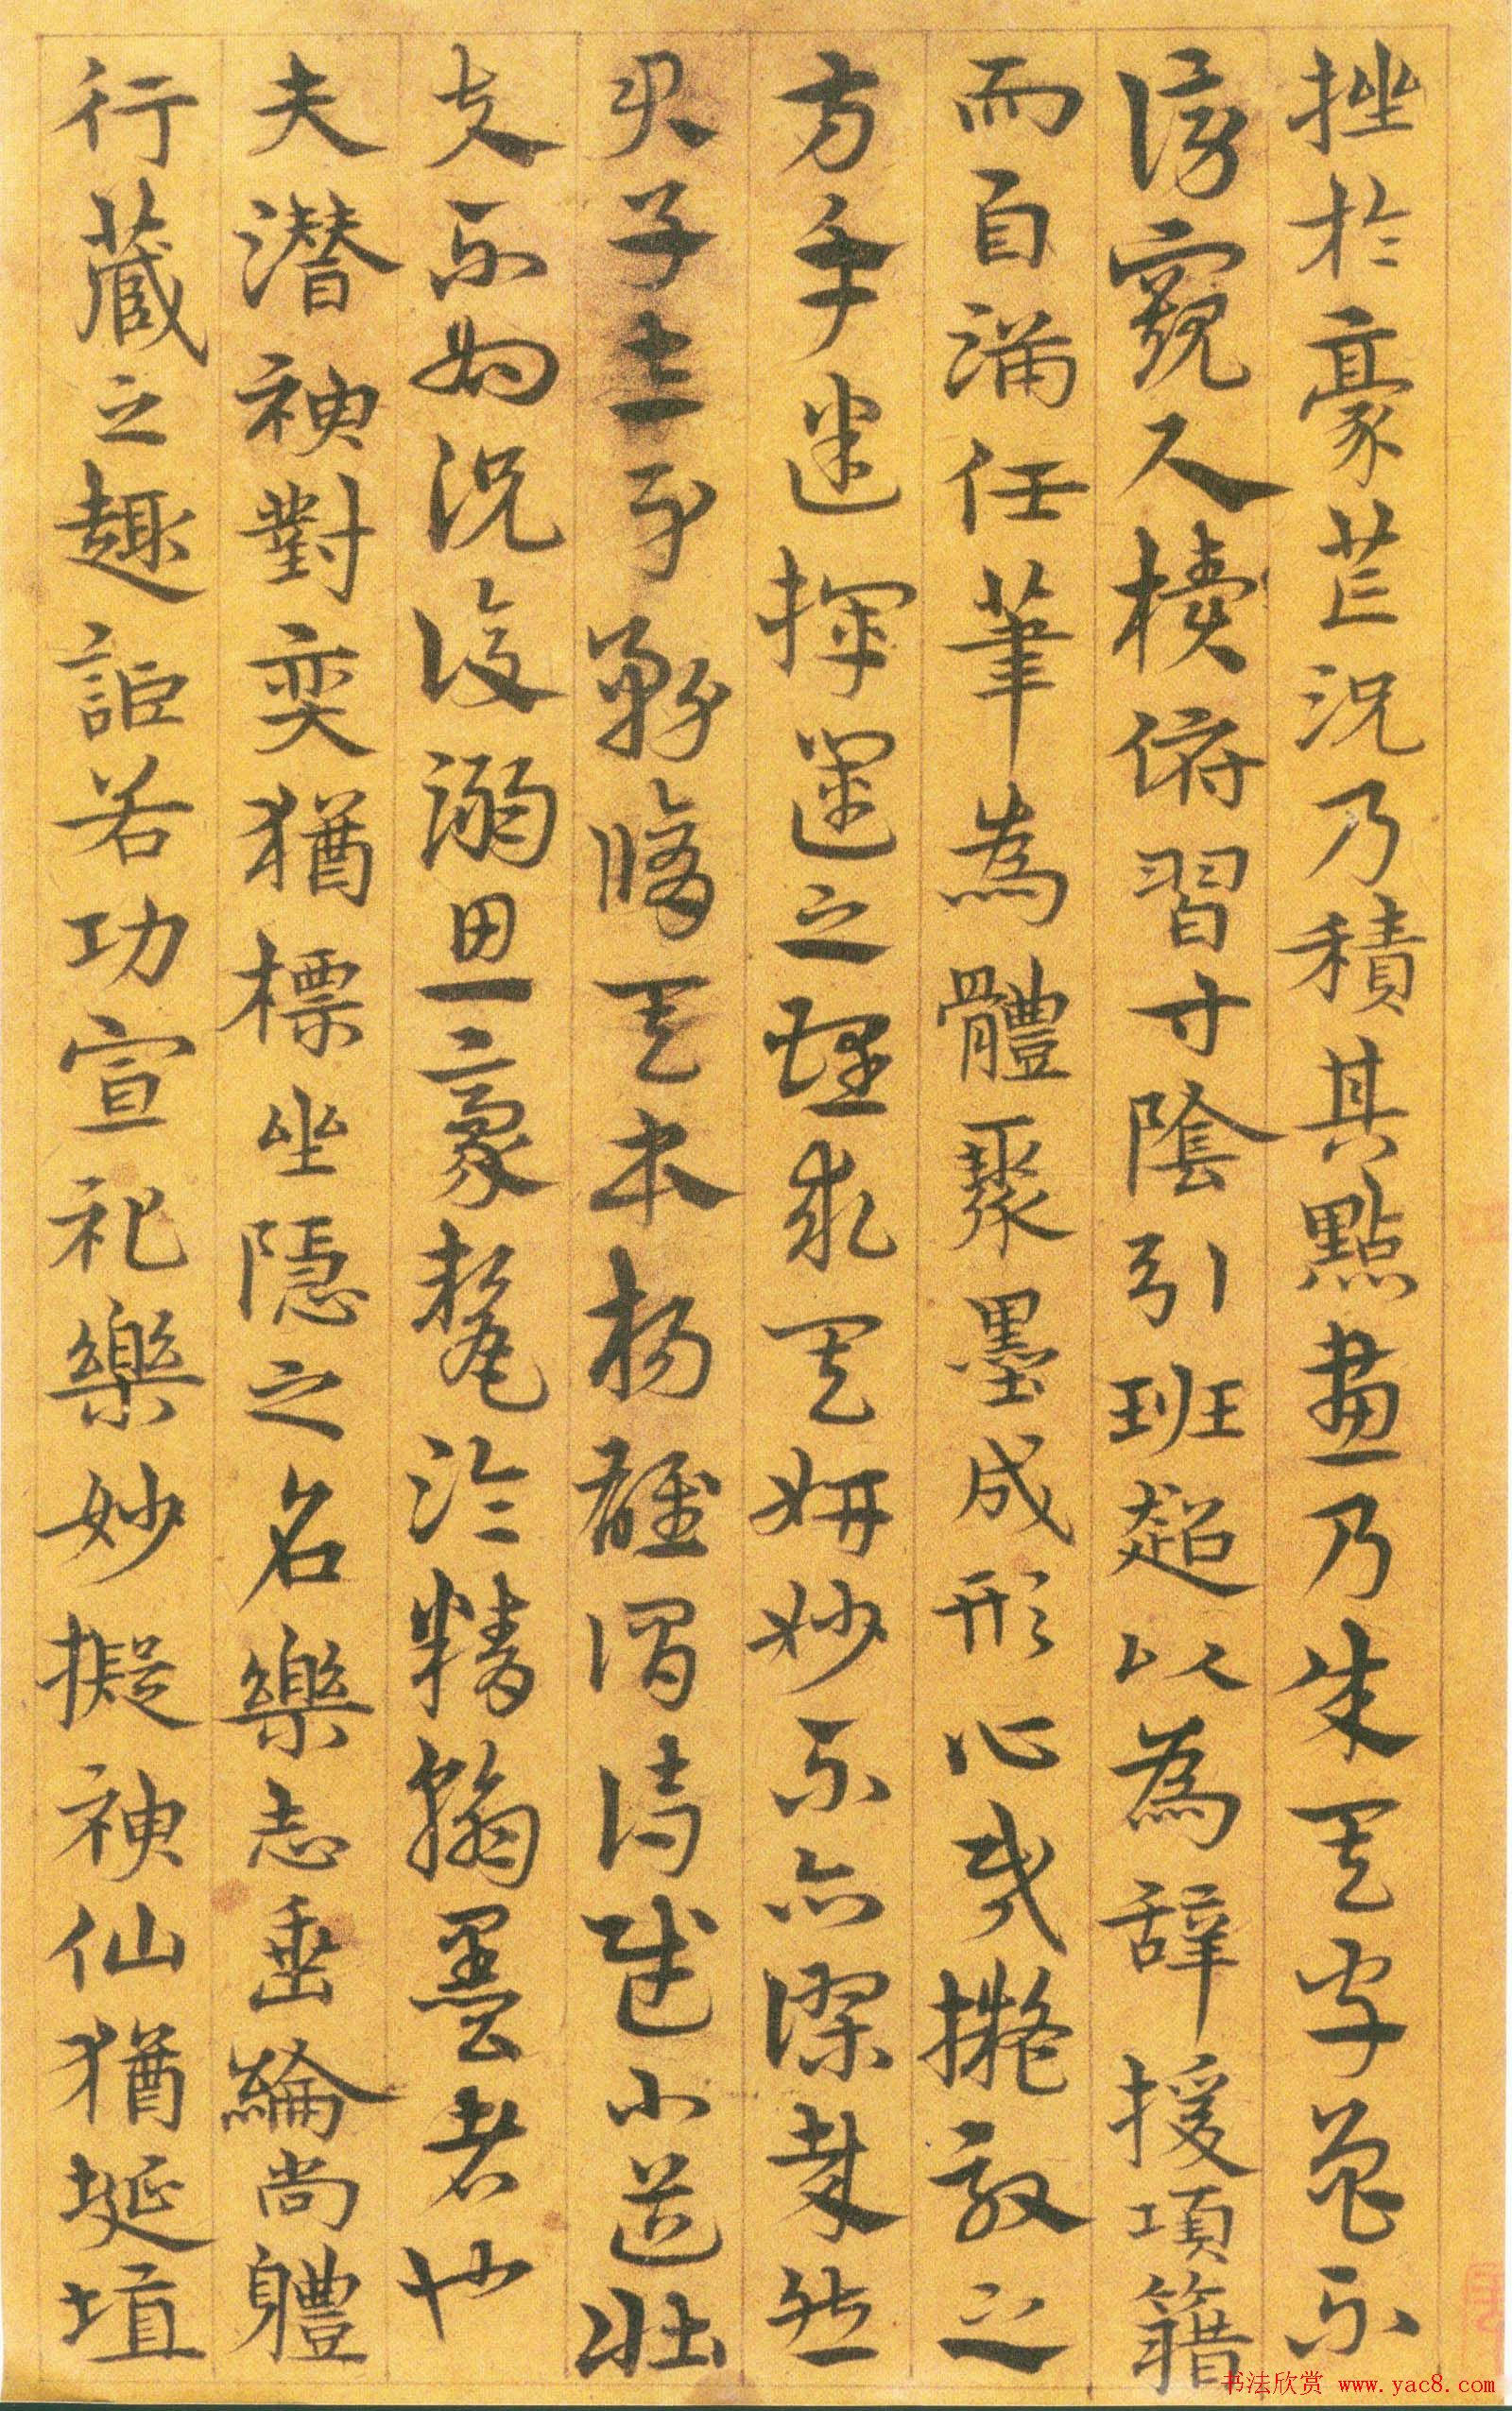 挫於豪芒況乃積其點畫乃成其字曾不
傍窺尺櫝俯習寸陰引班超以為辭援項籍
而自滿任筆為體聚墨成形心昏擬效之
方手迷揮運之理求其妍妙不亦謬哉然
君子立身務脩其本楊雄謂詩賦小道壯
夫不為況復溺思豪氂淪精翰墨者也
夫潛神對奕猶標坐隱之名樂志垂綸尚體
行藏之趣詎若功宣禮樂妙擬神仙猶埏埴
书法欣赏 www.yac8.com